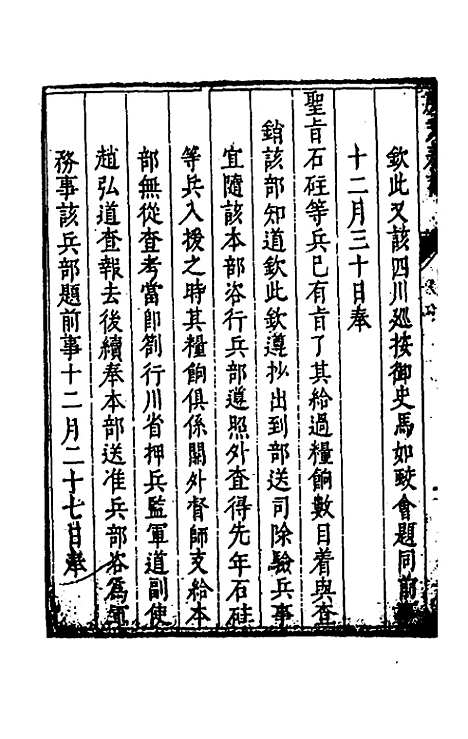 欽此又該四川廵按御史馬如蛟會題同前事
十二月三十日奉
聖旨石砫等兵已有旨了其給過糧餉數目着與查
銷該部知道欽此欽遵抄出到部送司除驗兵事
宜隨該本部咨行兵部遵照外查得先年石砫
等兵入援之時其糧餉俱係關外督師支給本
部無從查考當即劄行川省押兵監軍道副使
趙弘道查報去後續奉本部送准兵部咨爲軍
務事該兵部題前事十二月二十七日奉